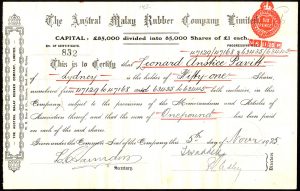 The Austral Malay Rubber Company Limited
CAPITAL: £85,000 divided into 85,000 Shares of £1 each.
NO. OF CERTIFICATE
832
This is to Certify that Leonard Anstice Pavitt
of Sydney is the holder of Fifty one Shares,
numbered from inclusive, in this
Company, subject to the provisions of the Memorandum and Articles of
Association thereof and that the sum of One pound has been
paid on each of the said Shares.
Given under the Common Seal of the Company this 5th day of Novr 1925
Secretary.